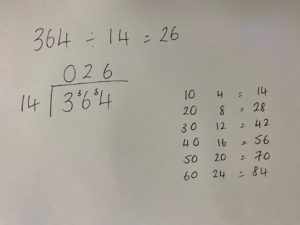 364 ÷ 14 = 26
026
14 3³6⁸4
10 4 = 14
20 8 = 28
30 12 = 42
40 16 = 56
50 20 = 70
60 24 = 84